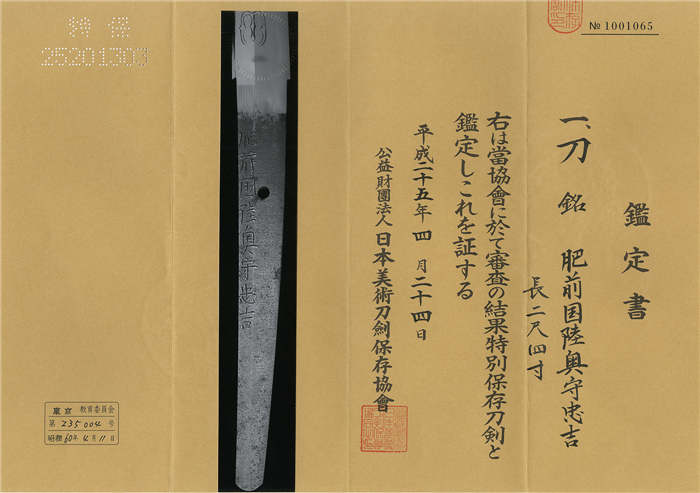 № 1001065
鑑定書
一、刀 銘 肥前国陸奥守忠吉
長二尺四寸
右は當協會に於て審査の結果特別保存刀剣と
鑑定しこれを証する
平成二十五年四月二十四日
公益財團法人日本美術刀劍保存協會
肥前国陸奥守忠吉
特保
25201303
東京 教育委員会
第 235004 号
昭和 60年 4月 11日